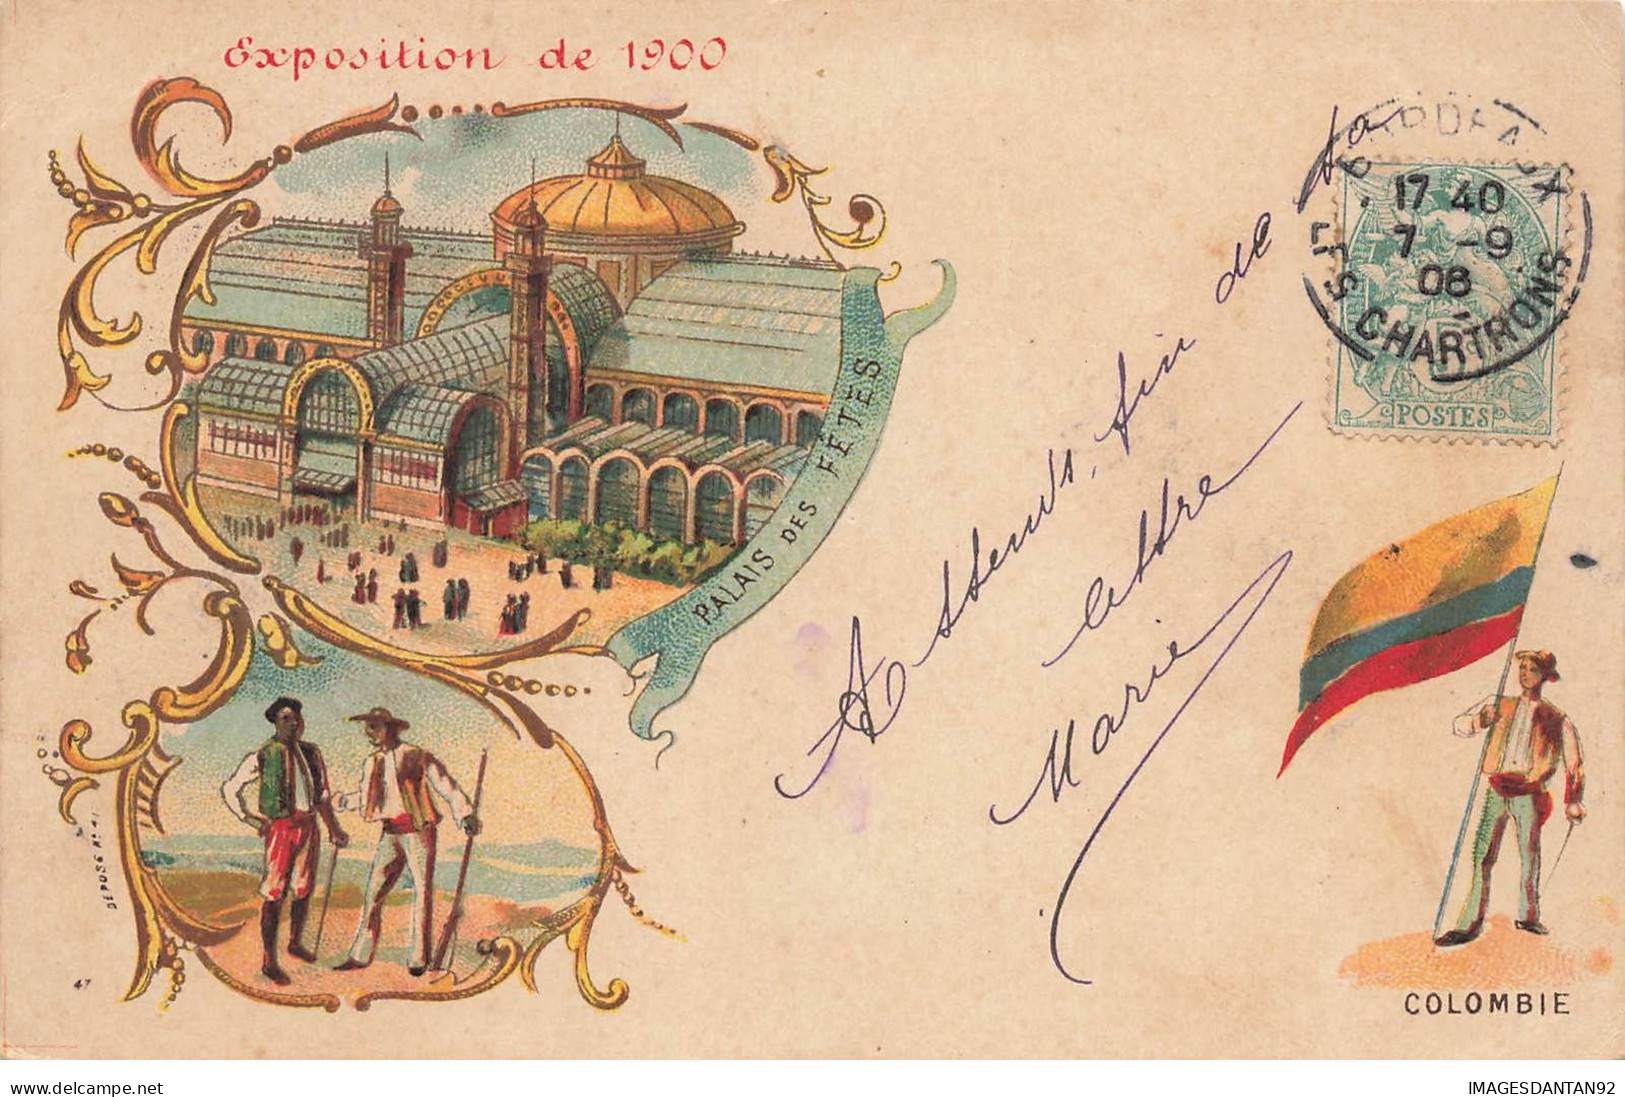 Exposition de 1900
PALAIS DES FÊTES
BORDEAUX
17 40
7 -9
06
LES CHARTRONS
POSTES
Attends, fin de ta
lettre
Marie
DEPOSE No 41
47
COLOMBIE
delcampe.net
IMAGESDANTAN92